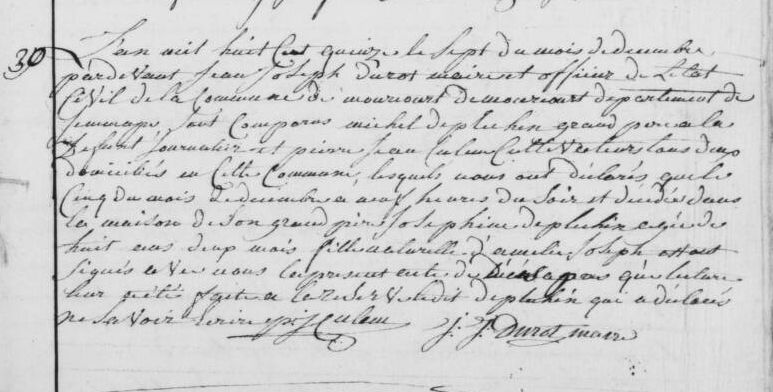 30
L'an mil huit cent quinze le sept du mois de decembre
pardevant Jean Joseph Durot maire et officier de Letat
Civil de la Commune de mourcourt de mourcourt departement de
Jemmape Sont Comparus michel depluchin grand pere a la
defunt Journalier et pierre Jean Culem Cultivateurs tous deux
domiciliés en Cette Commune, lesquels nous ont déclarés que le
Cinq du mois de decembre a neuf heures du Soir est decedée dans
la maison de Son grand père Josephine depluchin agée de
huit ans deux mois fille naturelle d'amelie Joseph et ont
Signés avec nous le present acte de décès apres que lecture
leur a été faite a la reserve dudit depluchin qui a déclarés
ne Savoir ecrire Culem J. J. Durot maire